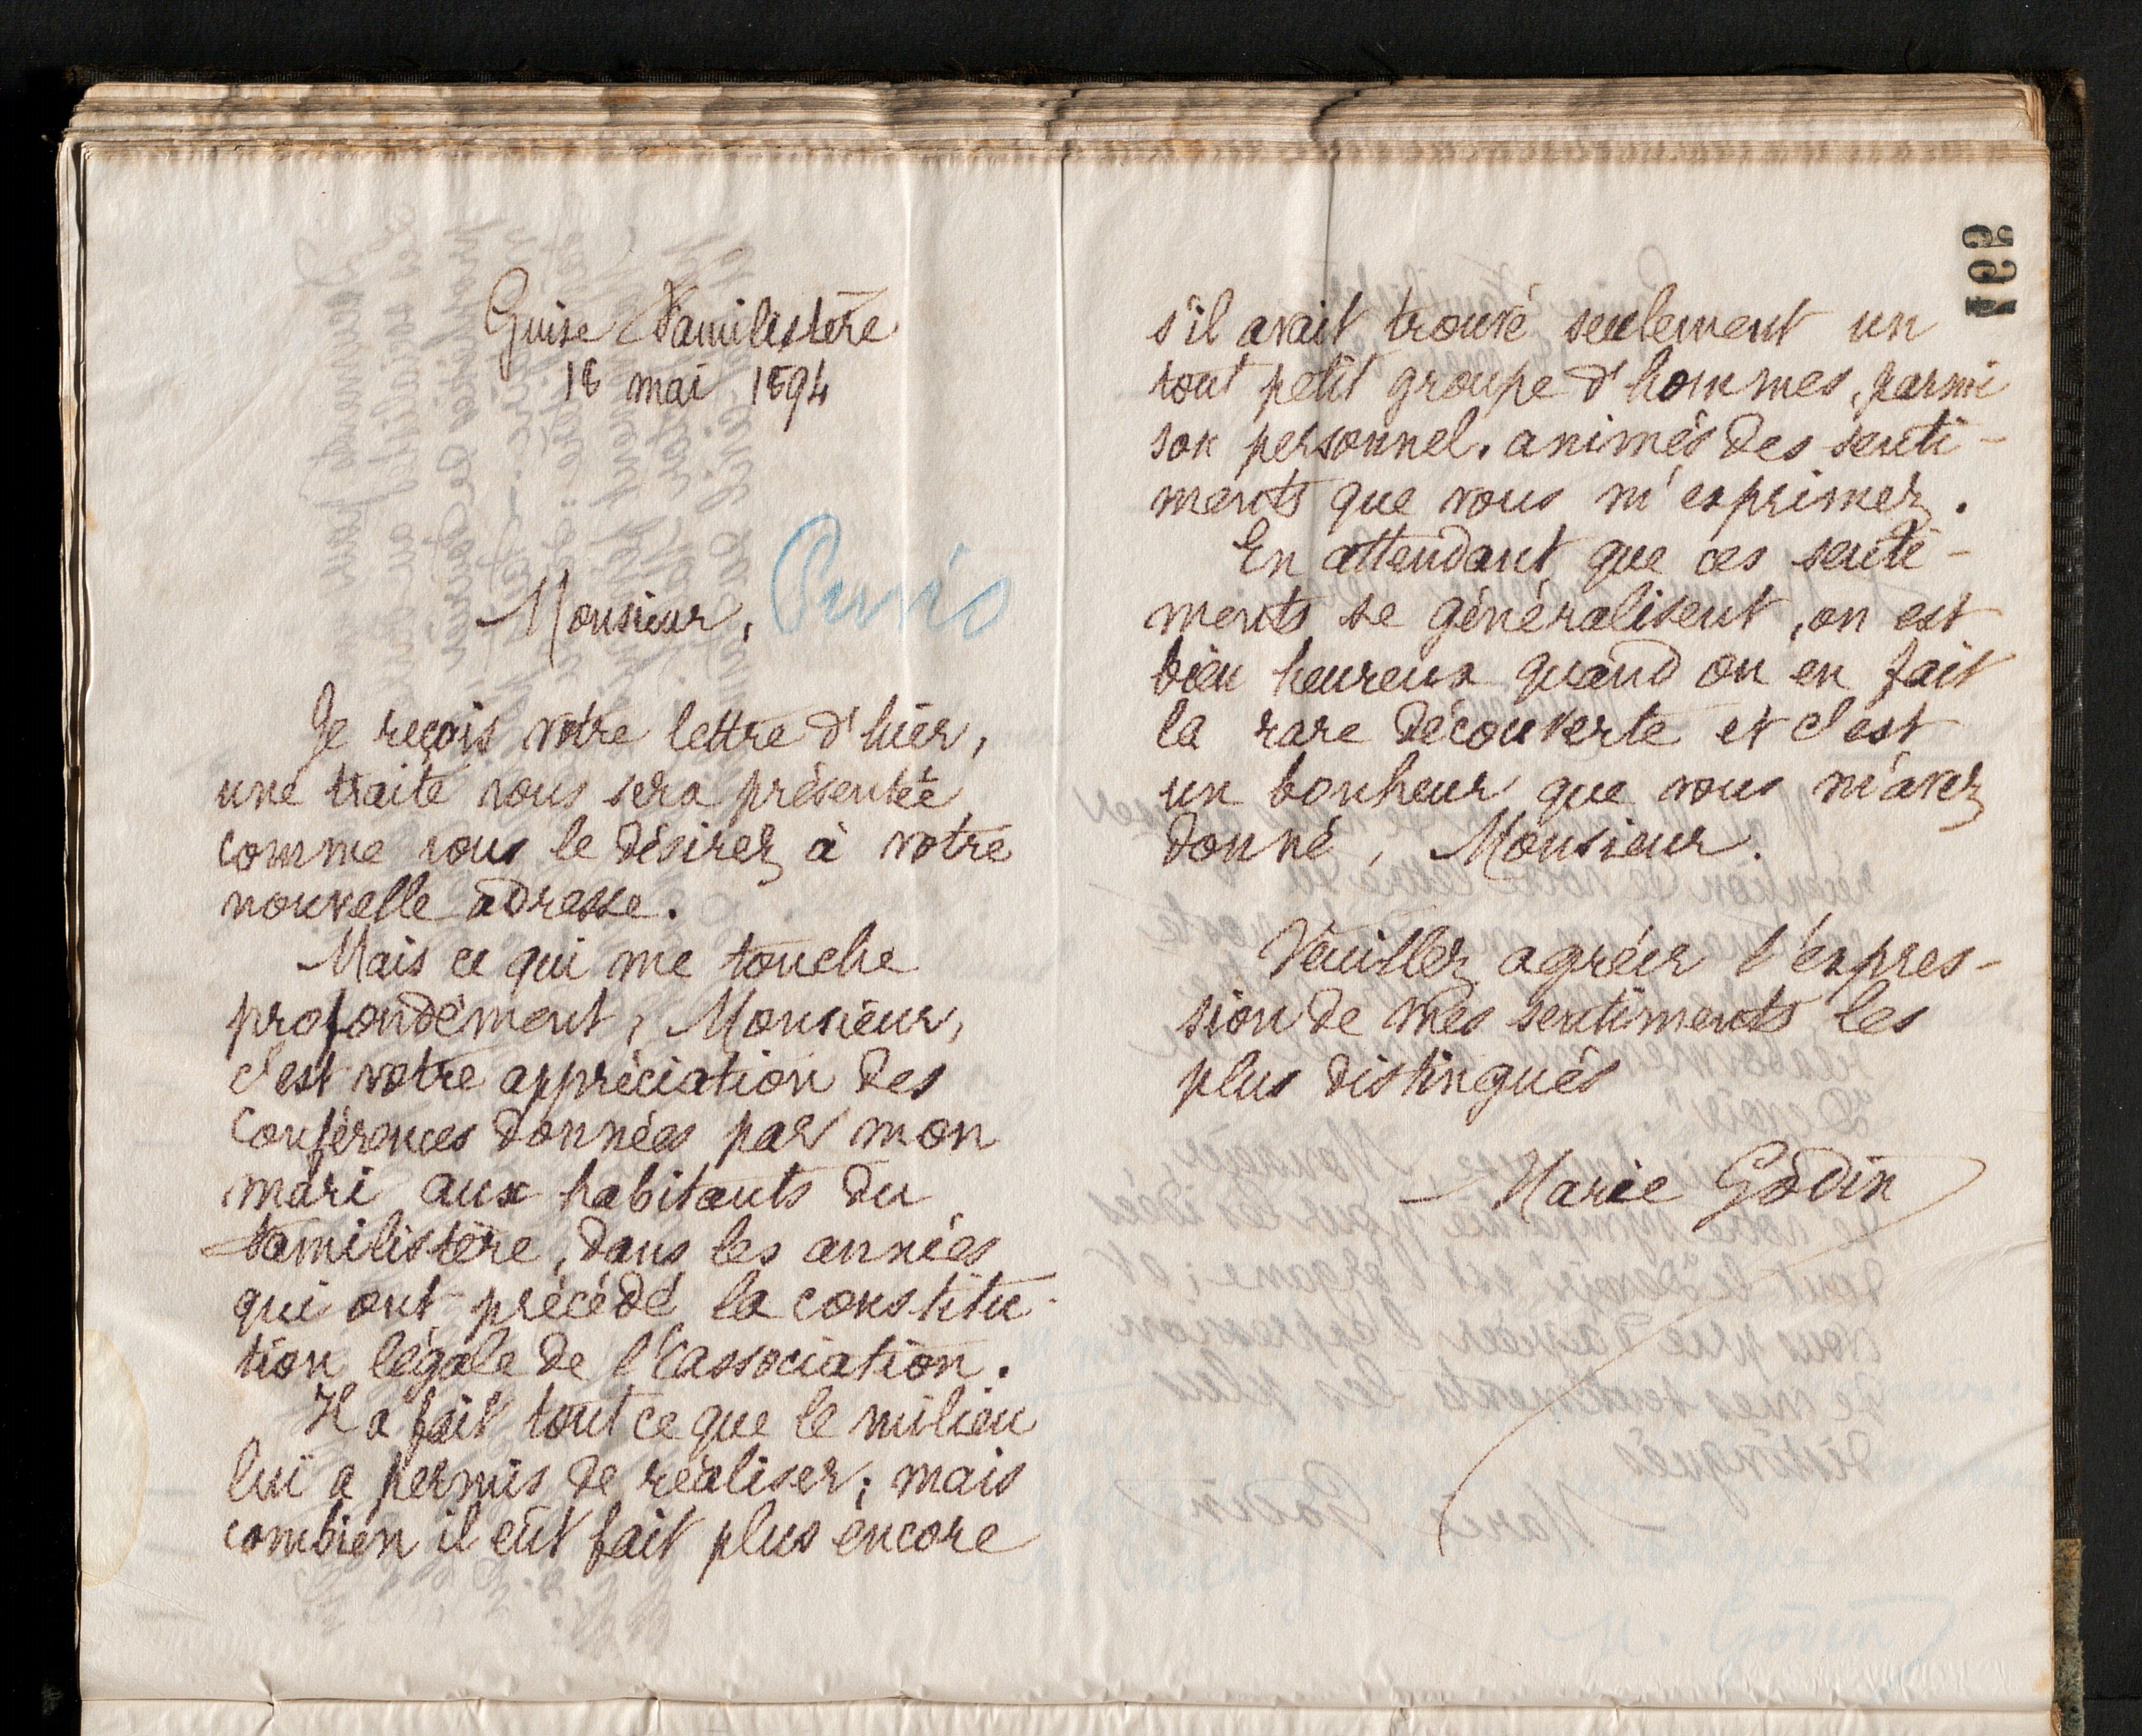 Guise Familistère
18 mai 1894
Monsieur,
Je reçois votre lettre d'hier,
une traite vous sera présentée
comme vous le désirez à votre
nouvelle adresse.
Mais ce qui me touche
profondément, Monsieur,
c'est votre appréciation des
Conférences données par mon
mari aux habitants du
Familistère, dans les années
qui ont précédé la constitu-
tion légale de l'association.
Il a fait tout ce que le milieu
lui a permis de réaliser; mais
combien il eût fait plus encore
s'il avait trouvé seulement un
tout petit groupe d'hommes, parmi
son personnel, animés des senti-
ments que vous m'exprimez.
En attendant que ces senti-
ments se généralisent, on est
bien heureux quand on en fait
la rare découverte et c'est
un bonheur que vous m'avez
donné, Monsieur.
Veuillez agréer l'expres-
sion de mes sentiments les
plus distingués
Marie Godin